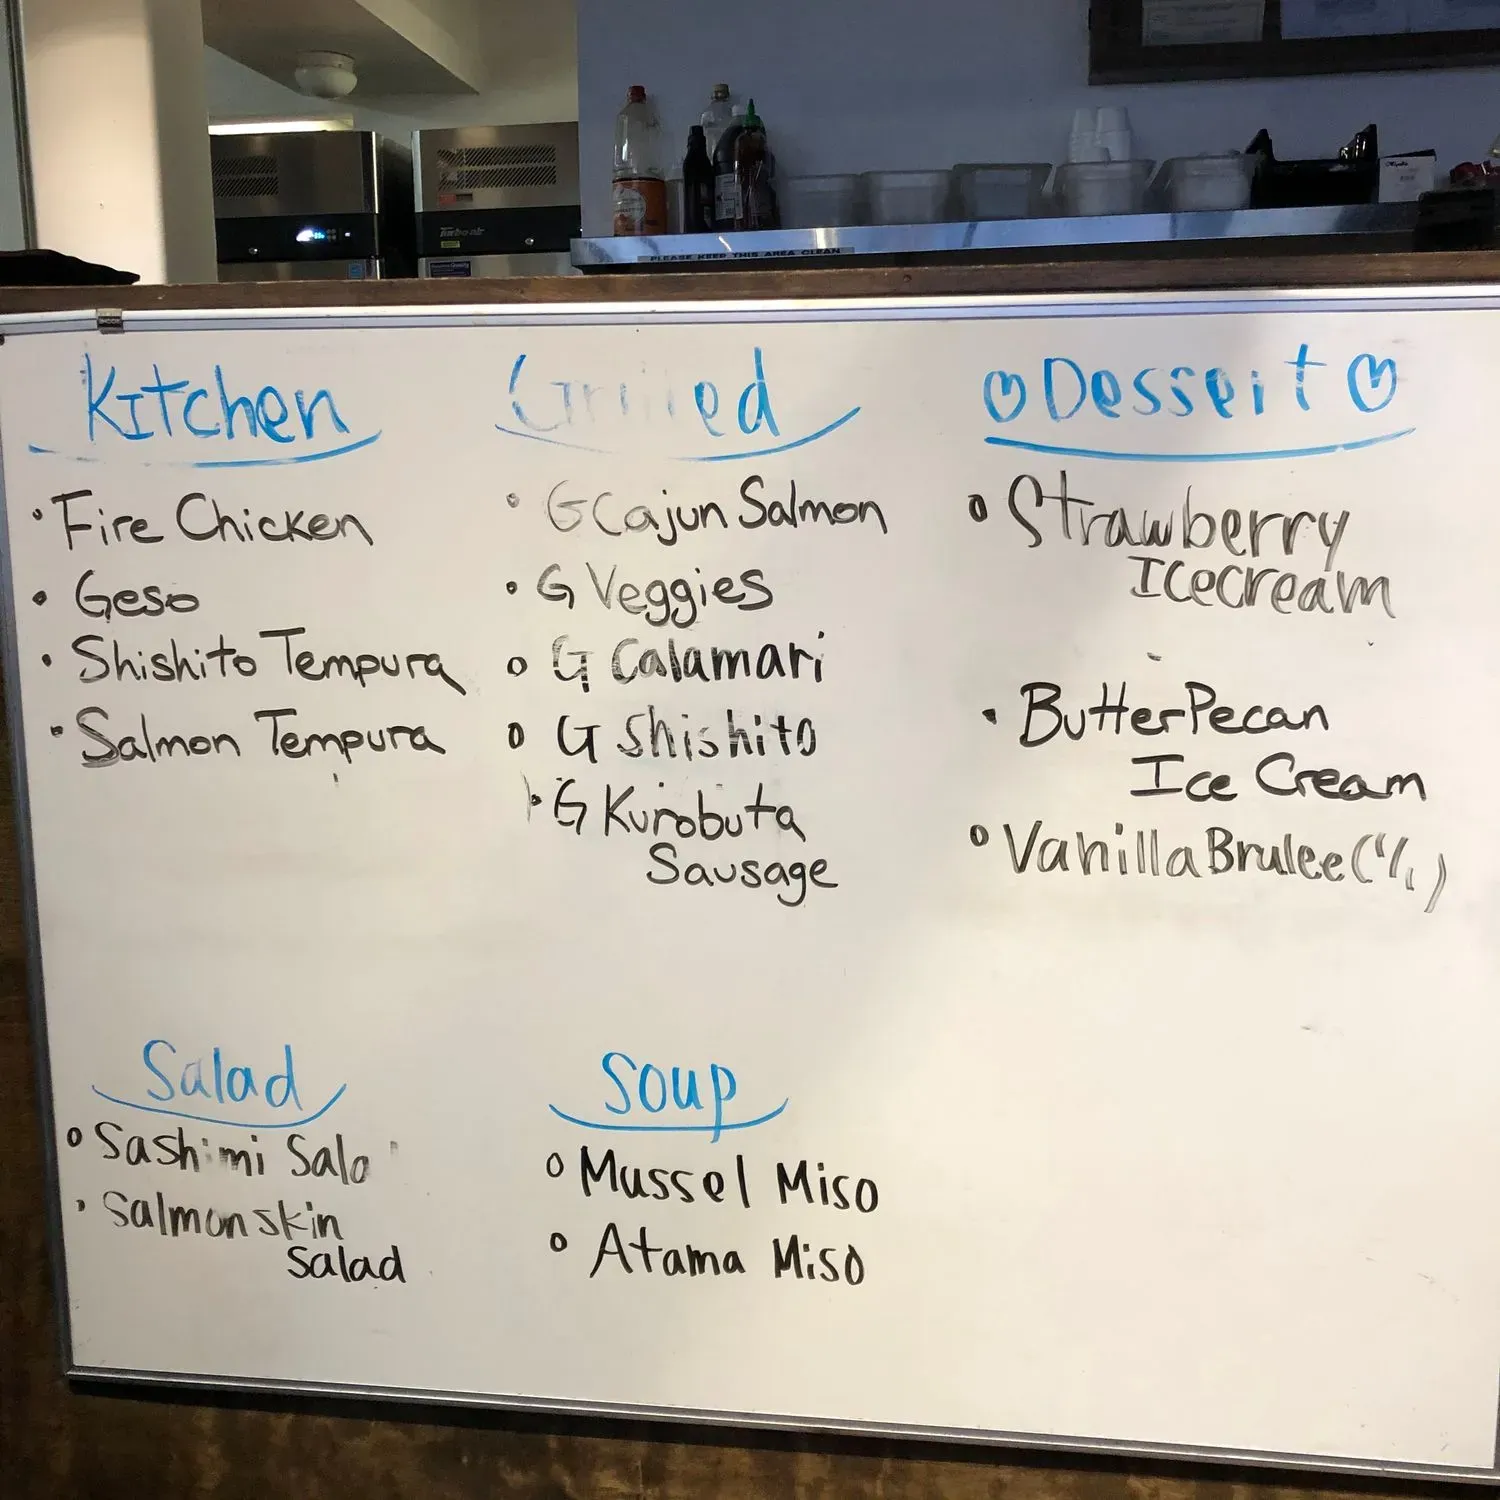 PLEASE KEEP THIS AREA CLEAN
Kitchen
• Fire Chicken
• Geso
• Shishito Tempura
• Salmon Tempura
Grilled
• G Cajun Salmon
• G Veggies
• G Calamari
• G Shishito
• G Kurobuta
Sausage
♡ Dessert ♡
• Strawberry
Icecream
• Butter Pecan
Ice Cream
• Vanilla Brulee
Salad
• Sashimi Sala
• Salmon skin
Salad
Soup
• Mussel Miso
• Atama Miso